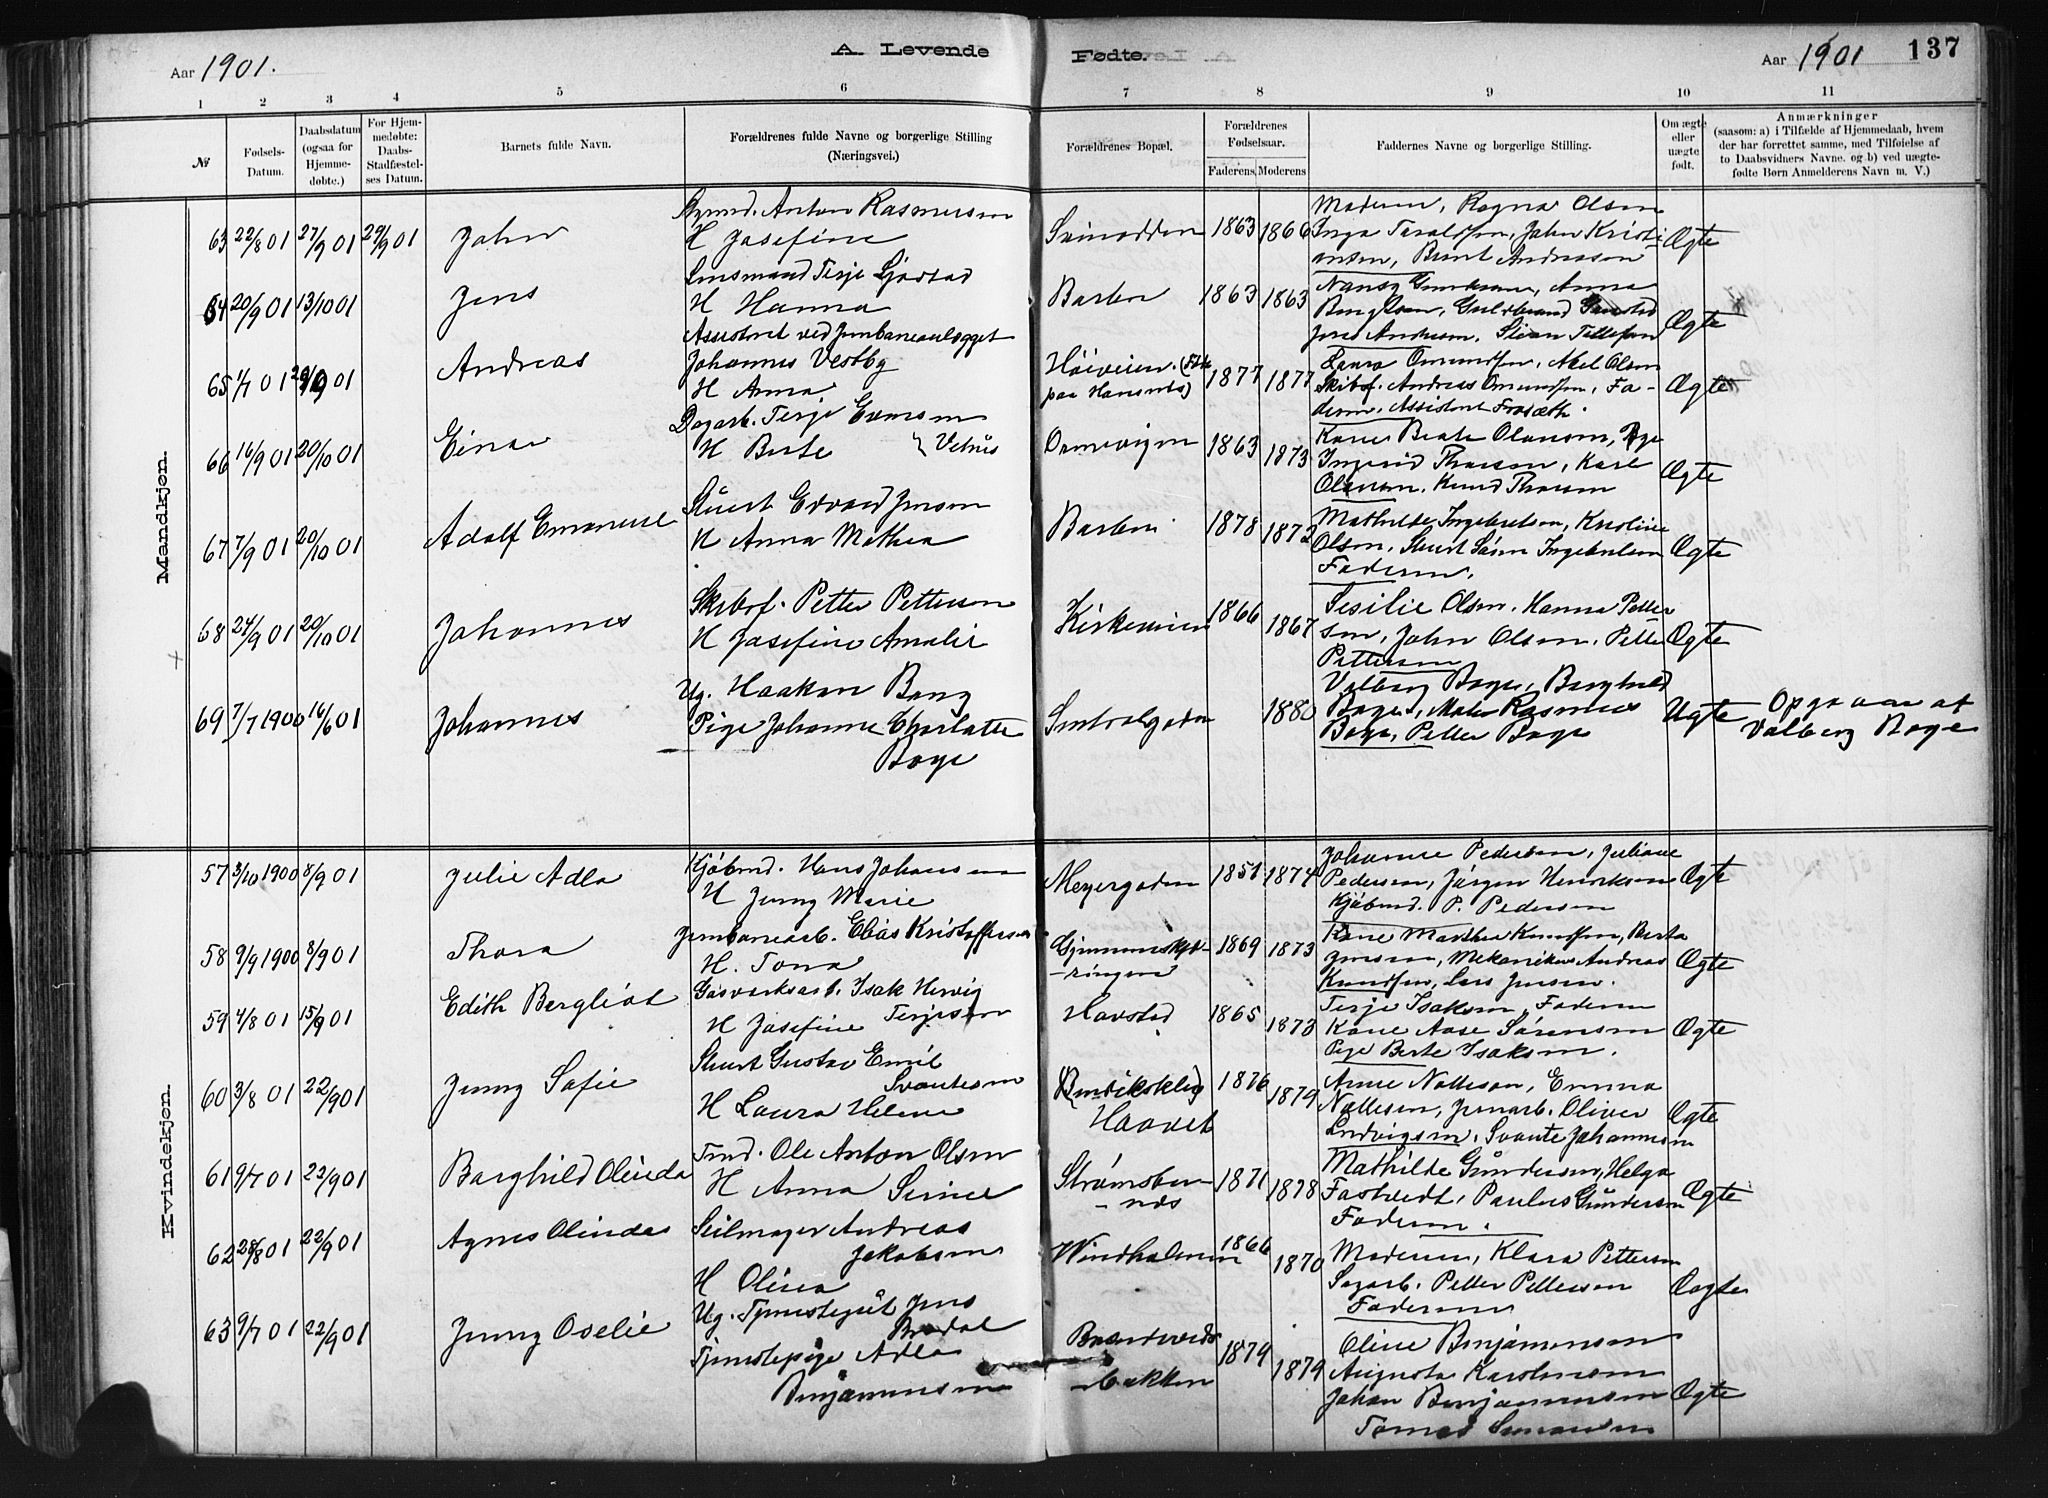 A. Levende Fødte.
Aar 1901.
Aar 1901
137
1 2 3 4 5 6 7 8 9 10 11
№
Fødsels-Datum.
Daabsdatum (ogsaa for Hjemme-døbte.)
For Hjem-medøbte: Daabs-Stadfæstel-ses Datum.
Barnets fulde Navn.
Forældrenes fulde Navne og borgerlige Stilling (Næringsvei.)
Forældrenes Bopæl.
Forældrenes Fødselsaar.
Faderens. Moderens
Faddernes Navne og borgerlige Stilling.
Om ægte eller uægte født.
Anmærkninger
(saasom: a) i Tilfælde af Hjemmedaab, hvem
der har forrettet samme, med Tilføielse af
to Daabsvidners Navne. og b) ved uægte-
fødte Børn Anmelderens Navn m. V.)
Mandkjøn.
63 22/8 01 27/9 01 29/9 01 John
Anton Rasmussen
H Josefine
1863 1866
Moderen, Ragna Olsen
Inga Taraldsen, John Kristi
ansen, Bernt Andreasen
Ægte
64 20/9 01 13/10 01 Jens
Terje
H Hanna
Barbu 1863 1863
Anna
Ægte
65 1/7 01 01 Andreas
Assistent ved Jernbaneanlægget
Johannes Vestby
H Anna
Høiveien
1877 1877
Laura Omundsen, Axel Olsen
Skibsf. Andreas Omundsen, Fa-
deren, Assistent
Ægte
66 16/9 01 20/10 01 Einar
Dagarb. Terje Evensen
H Berte Vehus
1863 1873
Kone Beate Olausen, Pige
Ingerid Thorsen, Karl
Olausen, Knud Thorsen
Ægte
67 7/9 01 20/10 01 Adolf Emanuel
Stuert Edvard Jensen
H Anna Mathea
Barbu 1878 1872
Mathilde Ingebretsen, Kristine
Olsen, Stuert Søren Ingebretsen
Faderen.
Ægte
68 24/9 01 20/10 01 Johannes
Skibsf. Petter Pettersen
H Josefine Amalie
Kirkeveien 1866 1867
Sesilie Olsen, Hanna Petter
sen, John Olsen, Petter
Pettersen
Ægte
69 7/7 1900 16/6 01 Johannes
Ug. Haakon Bang
Pige Johanne Charlotte
Boye
Sentralgaden 1880
Valborg Boye, Borghild
Boye, Rasmus
Boye, Petter Boye
Uægte
Opgaven af
Valborg Boye
Kvindekjøn.
57 3/10 1900 8/9 01 Julie Adla
Kjøbmd. Hans Johansen
H Jenny Marie
Meyergaden 1851 1874
Johanne Pedersen, Juliane
Pedersen, Jørgen Henriksen
Kjøbmd. P. Pedersen
Ægte
58 9/9 1900 8/9 01 Thora
Jernbanearb. Elias Kristoffersen
H. Tona
1869 1873
Kone Marthea Knudsen, Berta
Jensen, Mekaniker Andreas
Knudsen, Lars Jensen.
Ægte
59 4/8 01 15/9 01 Edith Bergliot
Gasværksarb. Isak Hervig
Terjesen
H Josefine
Havstad 1865 1873
Terje Isaksen, Faderen
Kone Aase Sørensen
Pige Berte Isaksen.
Ægte
60 3/8 01 22/9 01 Jenny Sofie
Stuert Gustav Emil
Svantesen
H Laura Helene
Haavet
1876 1879
Anne Nottesen, Emma
Nottesen, Jernarb. Oliver
Ludvigsen, Svante Johannesen
Ægte
61 9/7 01 22/9 01 Borghild Olinda
Tmd. Ole Anton Olsen
H Anna Serine
Strømsbu-
nds
1871 1878
Mathilde Gundersen, Helga
Fastvedt, Paulus Gundersen
Faderen.
Ægte
62 28/8 01 22/9 01 Agnes Olinda
Seilmager Andreas
Jakobsen
H Olina
Windholmen 1866 1870
Moderen, Klara Pettersen
Sagarb. Petter Pettersen
Faderen
Ægte
63 9/7 01 22/9 01 Jenny Oselie
Ug. Tjenestegut Jens
Tjenestepige Adla
Benjaminsen
bakken
1879 1879
Oline Benjaminsen
Augusta Karolinsen
Johan Benjaminsen
Ægte